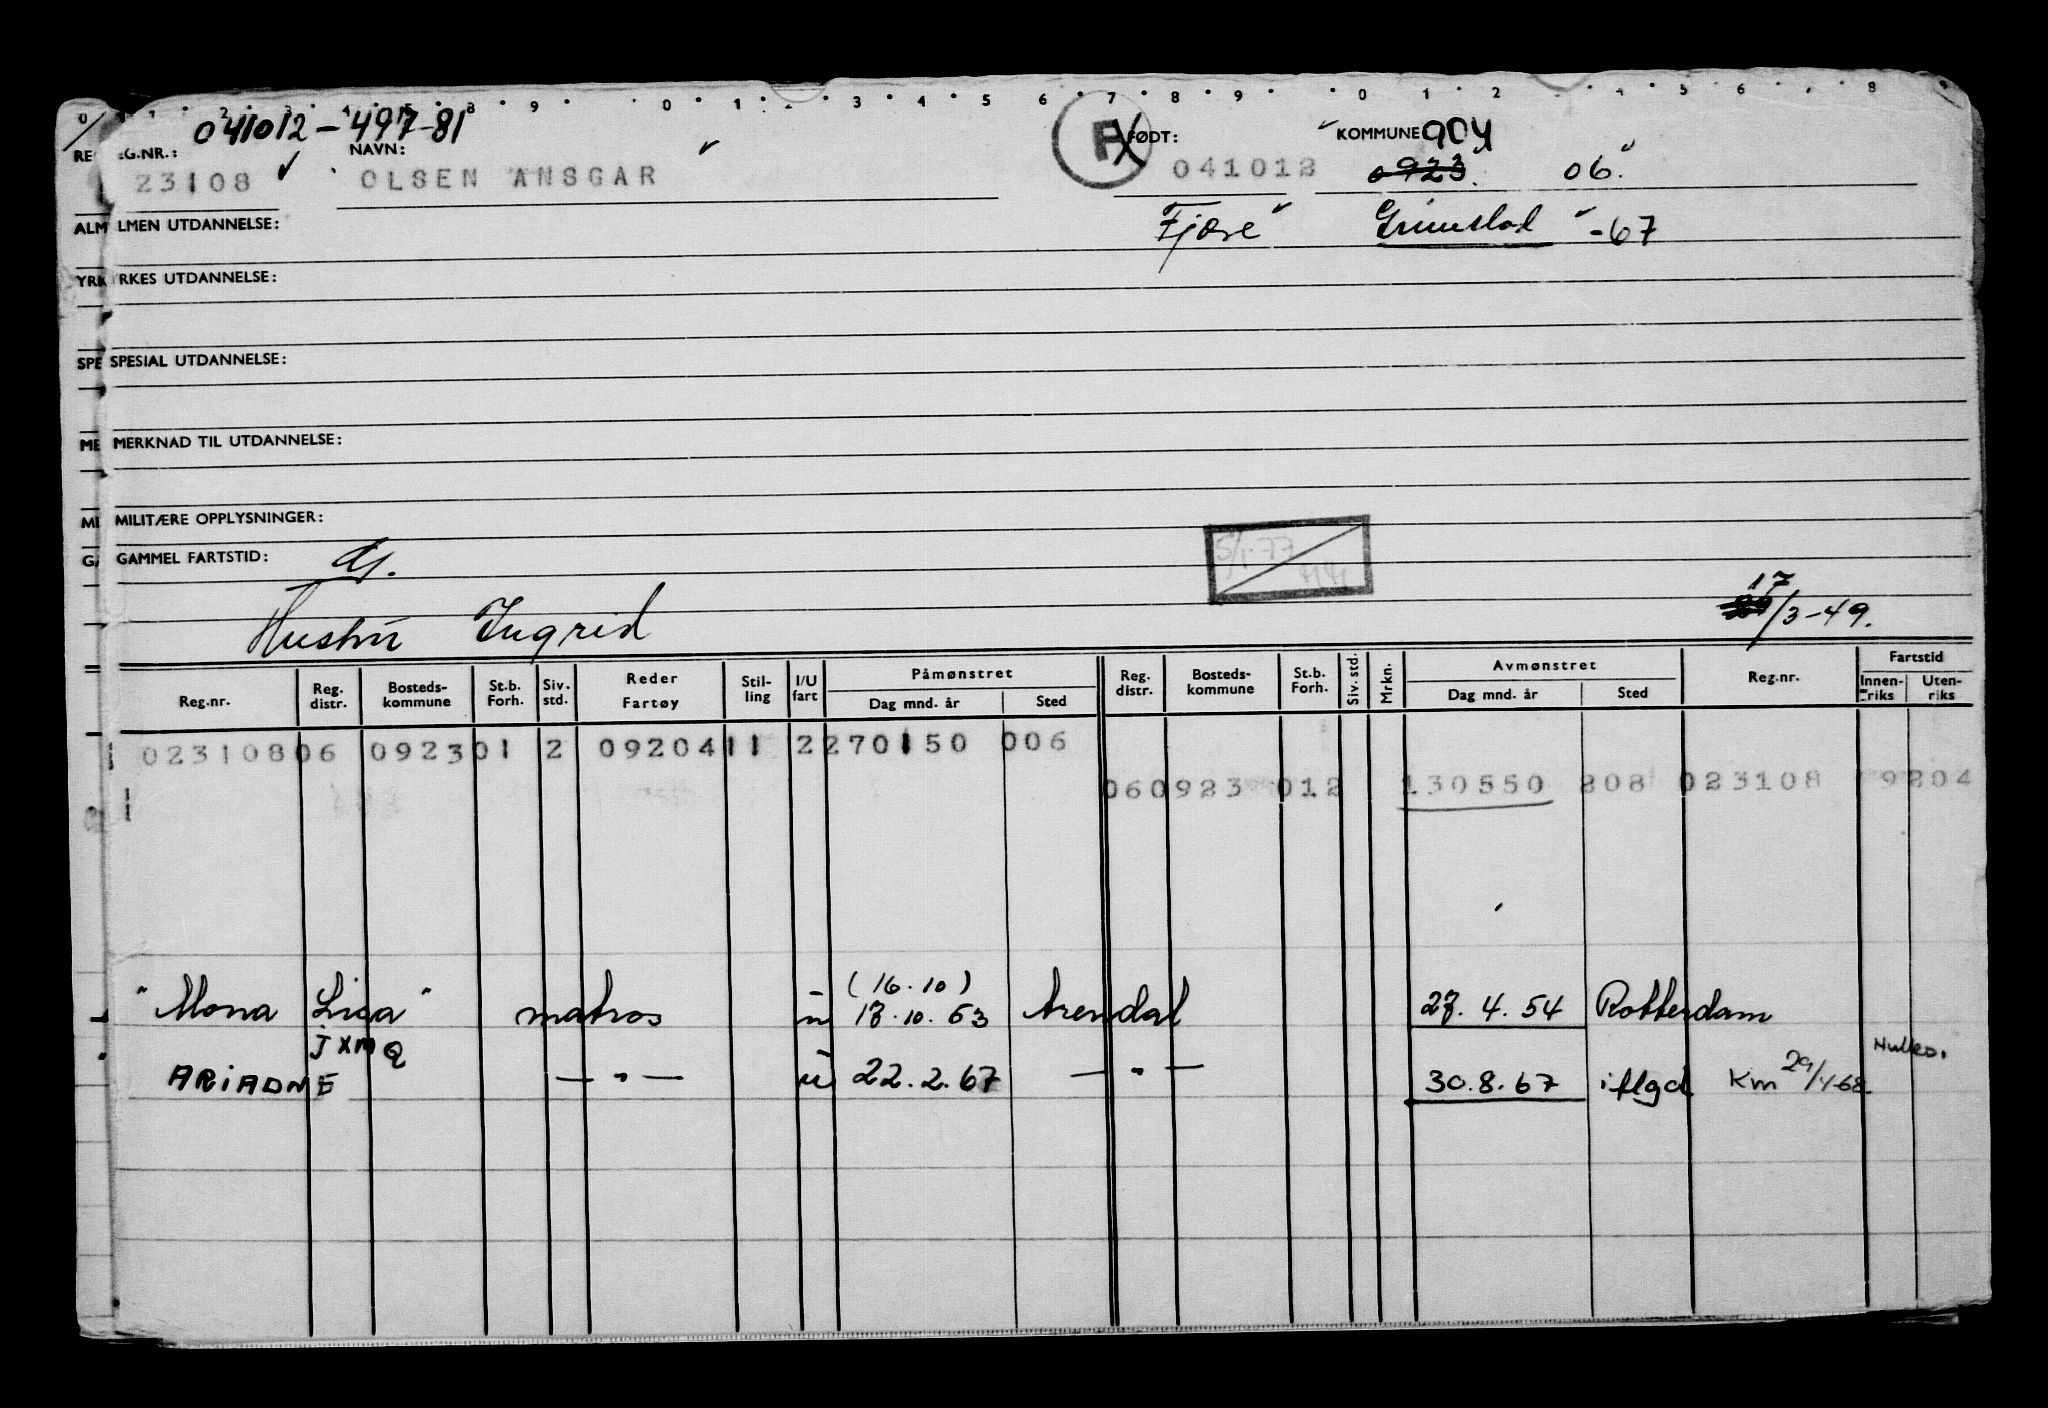 041012-497-81
REG.NR.: NAVN: FØDT: KOMMUNE 904
23108 OLSEN ANSGAR F 041012 0923 06
ALMEN UTDANNELSE: Fjære Grimstad -67
YRKES UTDANNELSE:
SPESIAL UTDANNELSE:
MERKNAD TIL UTDANNELSE:
MILITÆRE OPPLYSNINGER:
GAMMEL FARTSTID:
5/1-77
17/3-49.
Hustru Ingrid
Reg.nr. Reg. distr. Bosteds- kommune St.b. Forh. Siv. std. Reder Fartøy Stil- ling I/U fart Påmønstret Dag mnd. år Sted Reg. distr. Bosteds- kommune St.b. Forh. Siv. std. Mrkn. Avmønstret Dag mnd. år Sted Reg.nr. Fartstid Innen- riks Uten- riks
023108 06 0923 01 2 0920411 2 270150 006
06 0923 012 130550 208 023108 9204
(16.10)
"Mona Lisa" matros u 17.10.53 Arendal 27.4.54 Rotterdam
jxmQ
ARIADNE —"— u 22.2.67 —"— 30.8.67 iflgd Km 29/1-68 Hulko.